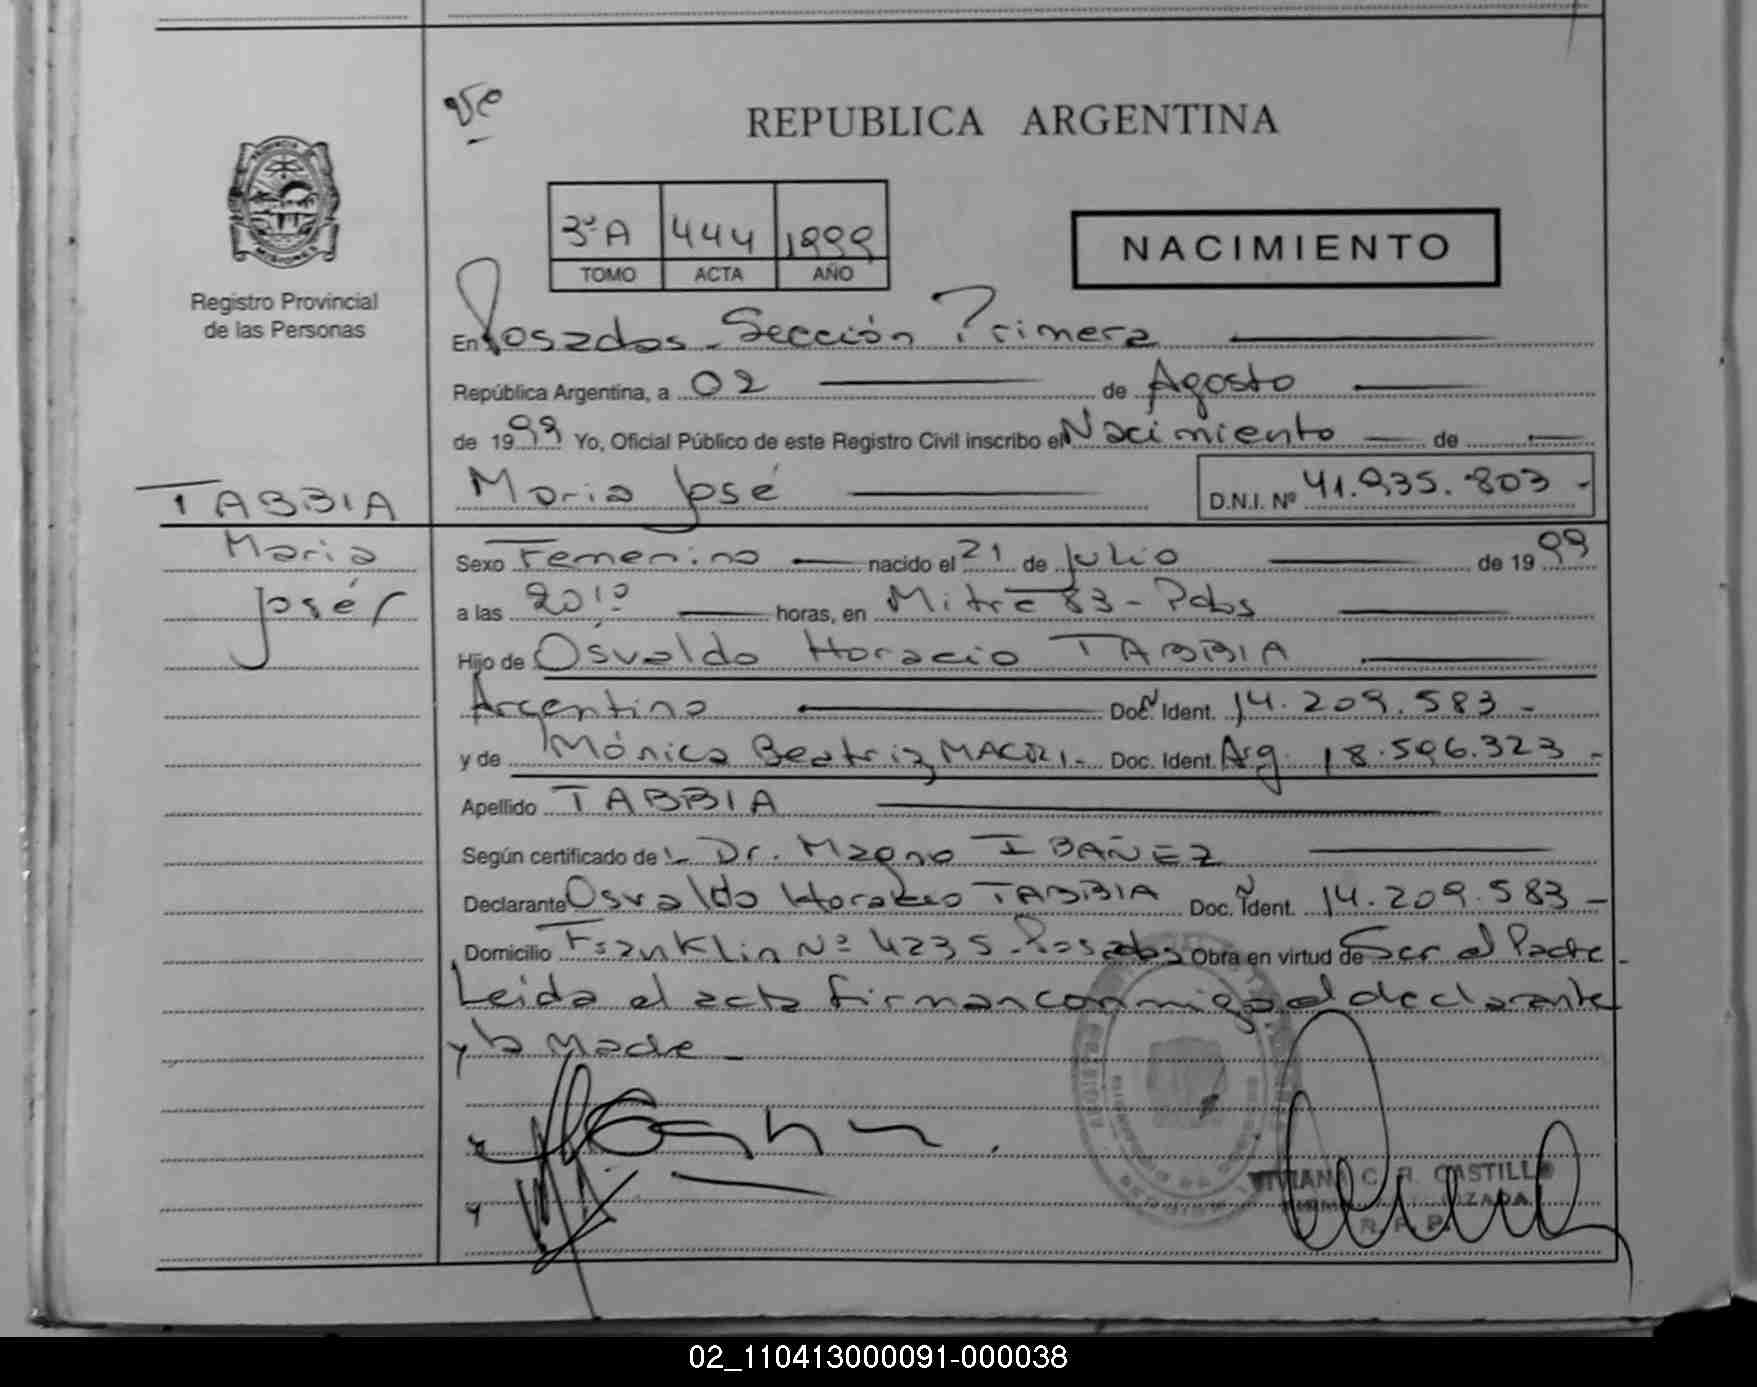 REPUBLICA ARGENTINA
3ºA 444 1999
TOMO ACTA AÑO
NACIMIENTO
Registro Provincial
de las Personas
En Posadas - Sección Primera
República Argentina, a 02 de Agosto
de 1999 Yo, Oficial Público de este Registro Civil inscribo el Nacimiento de
TABBIA
Maria José
D.N.I. Nº 41.935.803 -
Maria
José
Sexo Femenino nacido el 21 de Julio de 1999
a las 20¹⁰ horas, en Mitre 83 - Pdas
Hijo de Osvaldo Horacio TABBIA
Argentino Doc. Ident. 14.209.583 -
y de Mónica Beatriz MACRI - Doc. Ident. Arg. 18.596.323 -
Apellido TABBIA
Según certificado del Dr. Magno IBAÑEZ
Declarante Osvaldo Horacio TABBIA Doc. Ident. 14.209.583 -
Domicilio Franklin Nº 4235 - Posadas Obra en virtud de Ser el Padre -
Leida el acta firman conmigo el declarante
y la Madre -
VIVIANA C. R. CASTILLO
LOZADA
R. P. P.
02_110413000091-000038